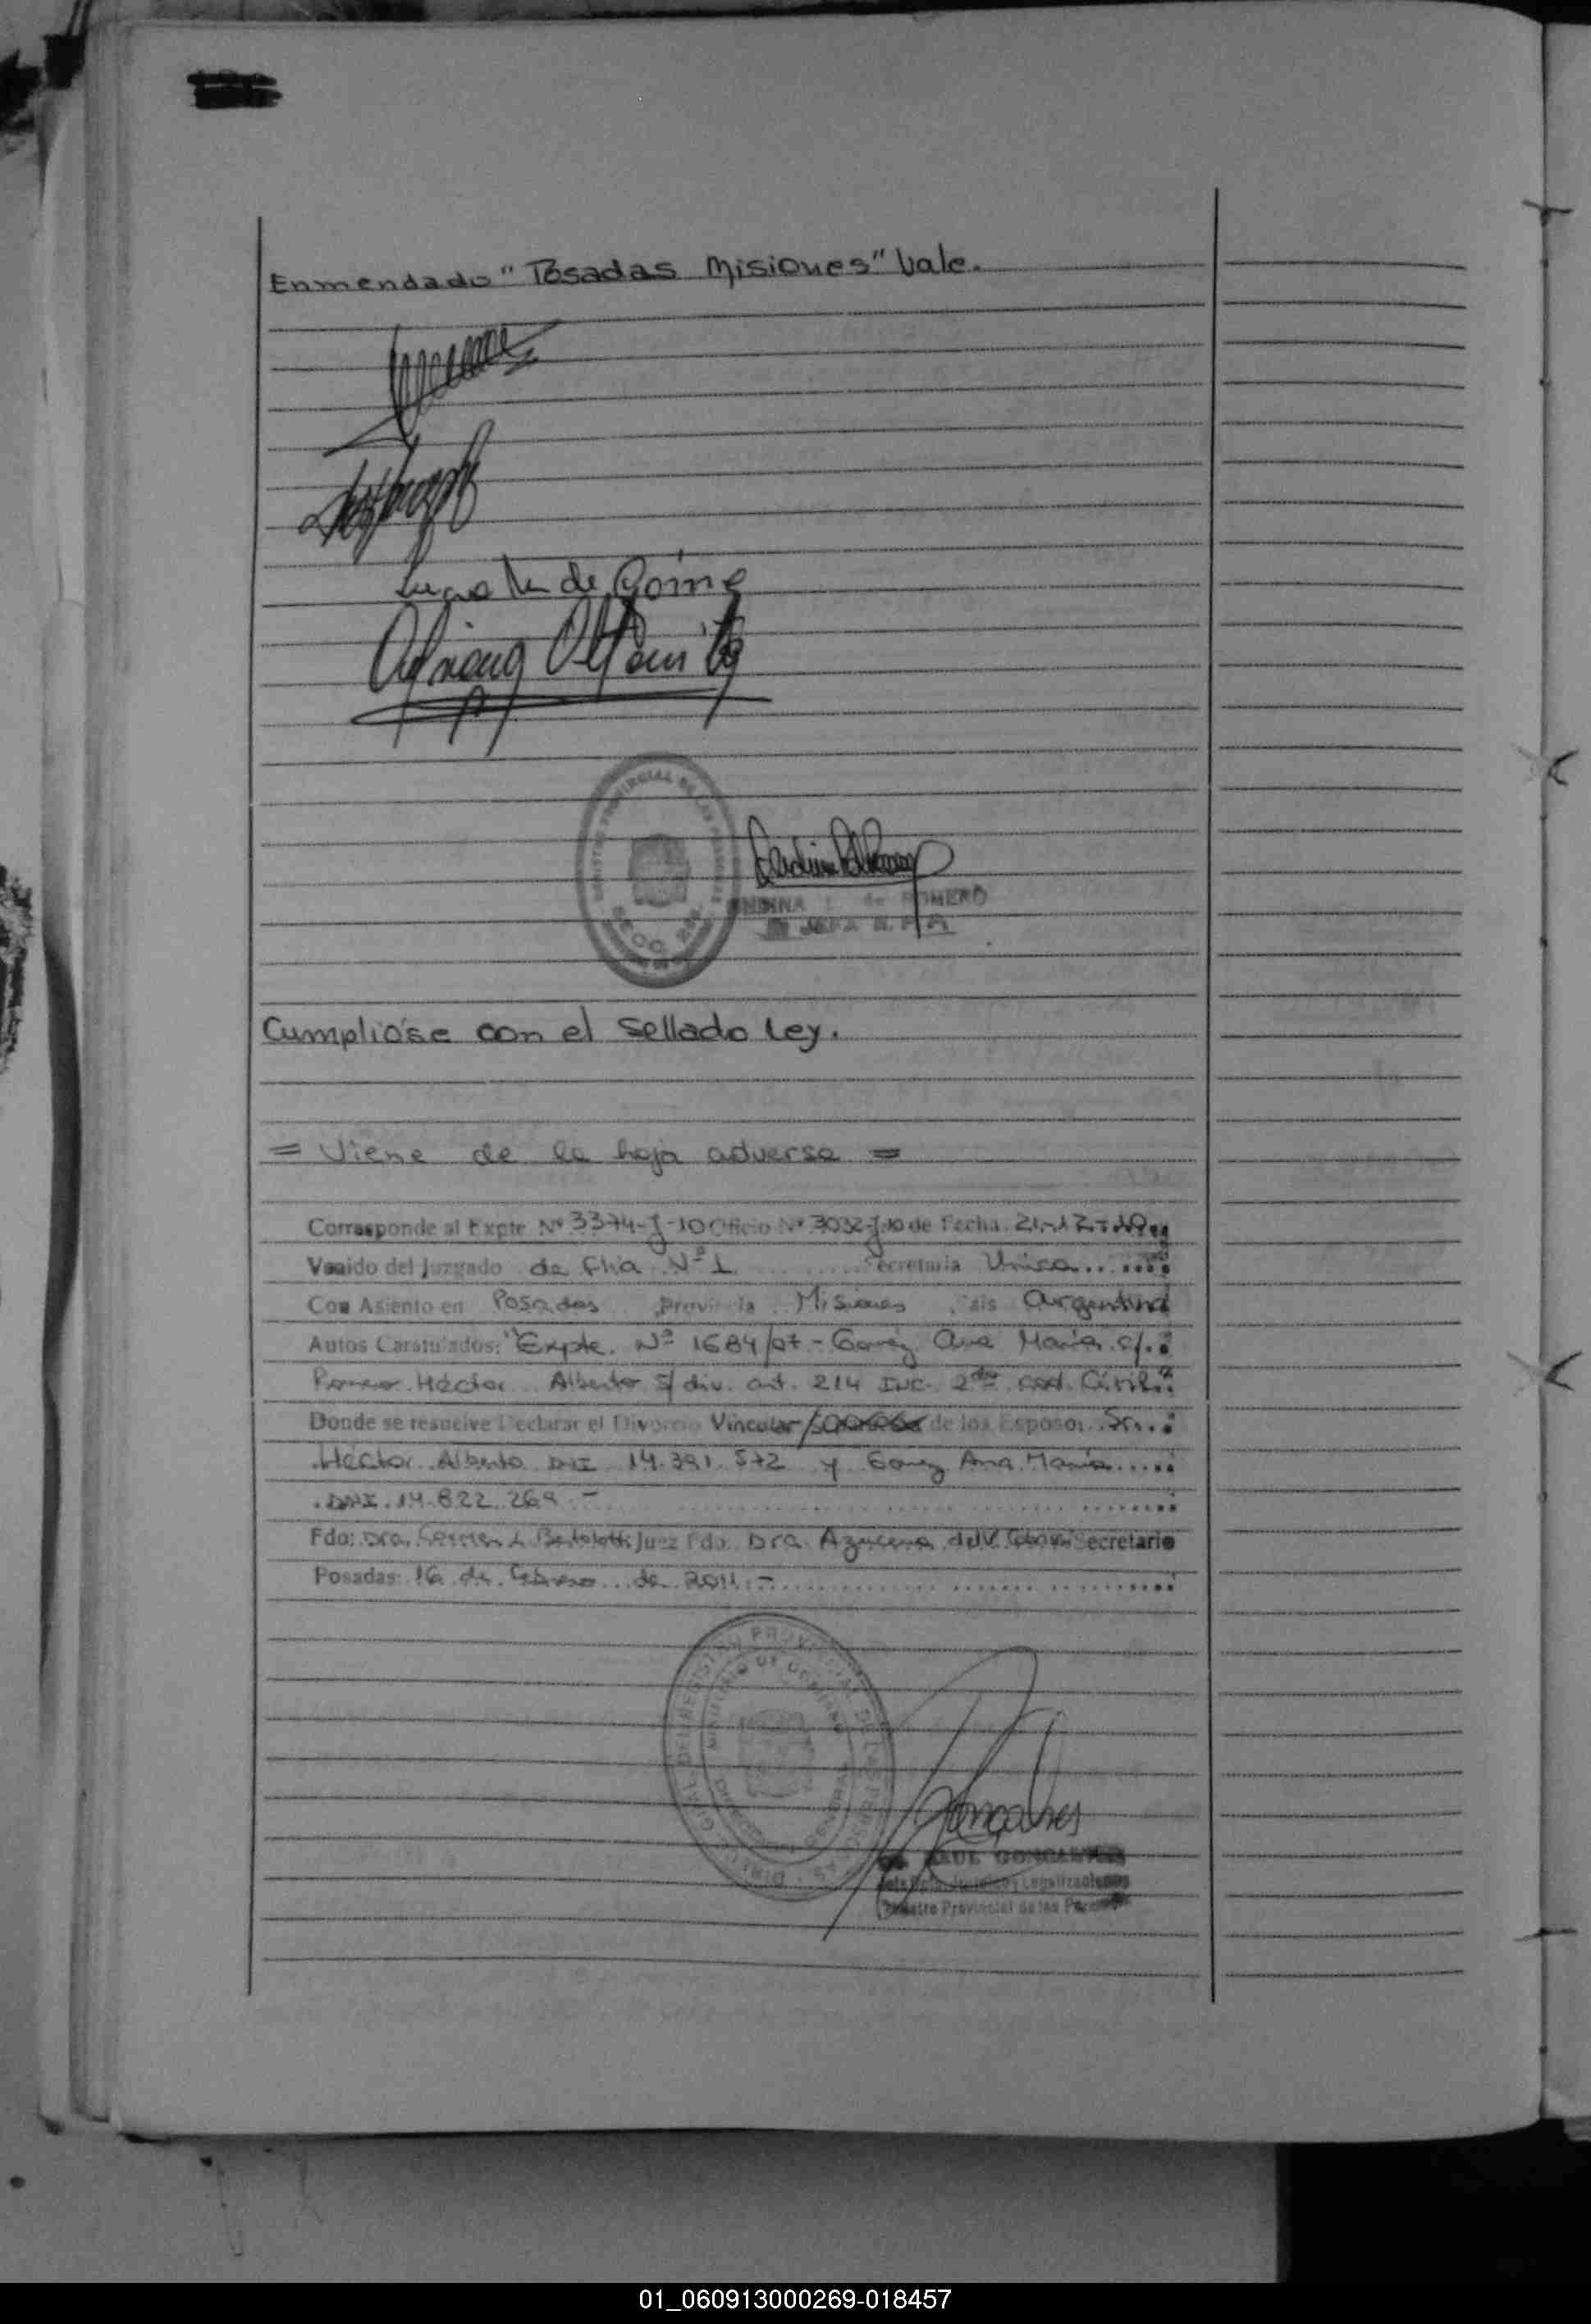 Enmendado "Posadas Misiones" Vale.
de
REGISTRO PROVINCIAL DE LAS PERSONAS
SECC
de ROMERO
JEFA R.P.
Cumplióse con el sellado Ley.
= Viene de la hoja adversa =
Corresponde al Expte Nº 3374-J-10 Oficio Nº 3032-J-10 de Fecha 21-12-10
Venido del Juzgado de flia Nº 1 Secretaria Unica
Con Asiento en Posadas Provincia Misiones Pais Argentina
Autos Caratulados: "Expte. Nº 1684/07 - Ana María c/
Héctor Alberto s/ div. art. 214 INC. 2do cod. Civil."
Donde se resuelve Declarar el Divorcio Vincular/ de los Esposos Sr.
Héctor Alberto DNI 14.391.572 y Ana María
DNI. 14.822.269.-
Fdo: Dra. Carmen L. Bertolotti Juez Fdo. Dra Azucena del V. Secretario
Posadas: 16 de febrero de 2011.-
DIRECCION GRAL. DEL REGISTRO PROVINCIAL DE LAS PERSONAS
MINISTERIO DE GOBIERNO
Goncalves
RAUL GONCALVES
Jefe Dpto. Jurídico y Legalizaciones
Registro Provincial de las Personas
01_060913000269-018457